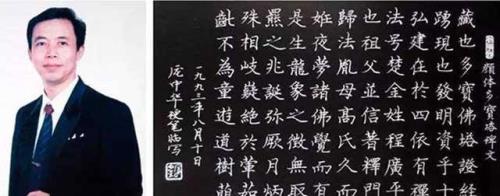 顏体多寶塔碑文
藏也多寶佛塔證經
踴現也發明資乎十
弘建在於四依有
法号楚金姓程廣平
也祖父並信著釋
歸法胤母高氏久而
妊夜夢諸佛覺而有
是生龍象之徵無取
羆之兆誕弥厥月炳
殊相岐嶷絕於葷茹
齓不為童遊道樹萌
一九九三年八月十日
庞中华硬笔临写